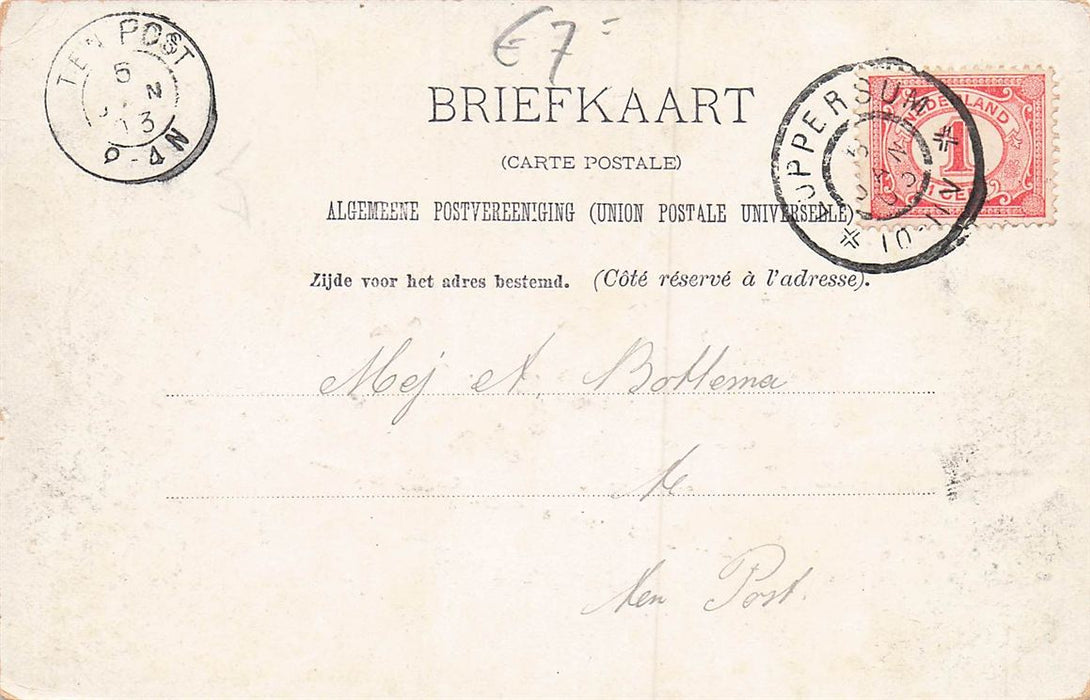 € 7 -
TEN POST
5
13
BRIEFKAART
(CARTE POSTALE)
ALGEMEENE POSTVEREENIGING (UNION POSTALE UNIVERSELLE)
Zijde voor het adres bestemd. (Côté réservé à l'adresse).
LUPPERSUM
10-11N
NEDERLAND
1
1 CENT
Mej A. Bottema
te
ten Post.